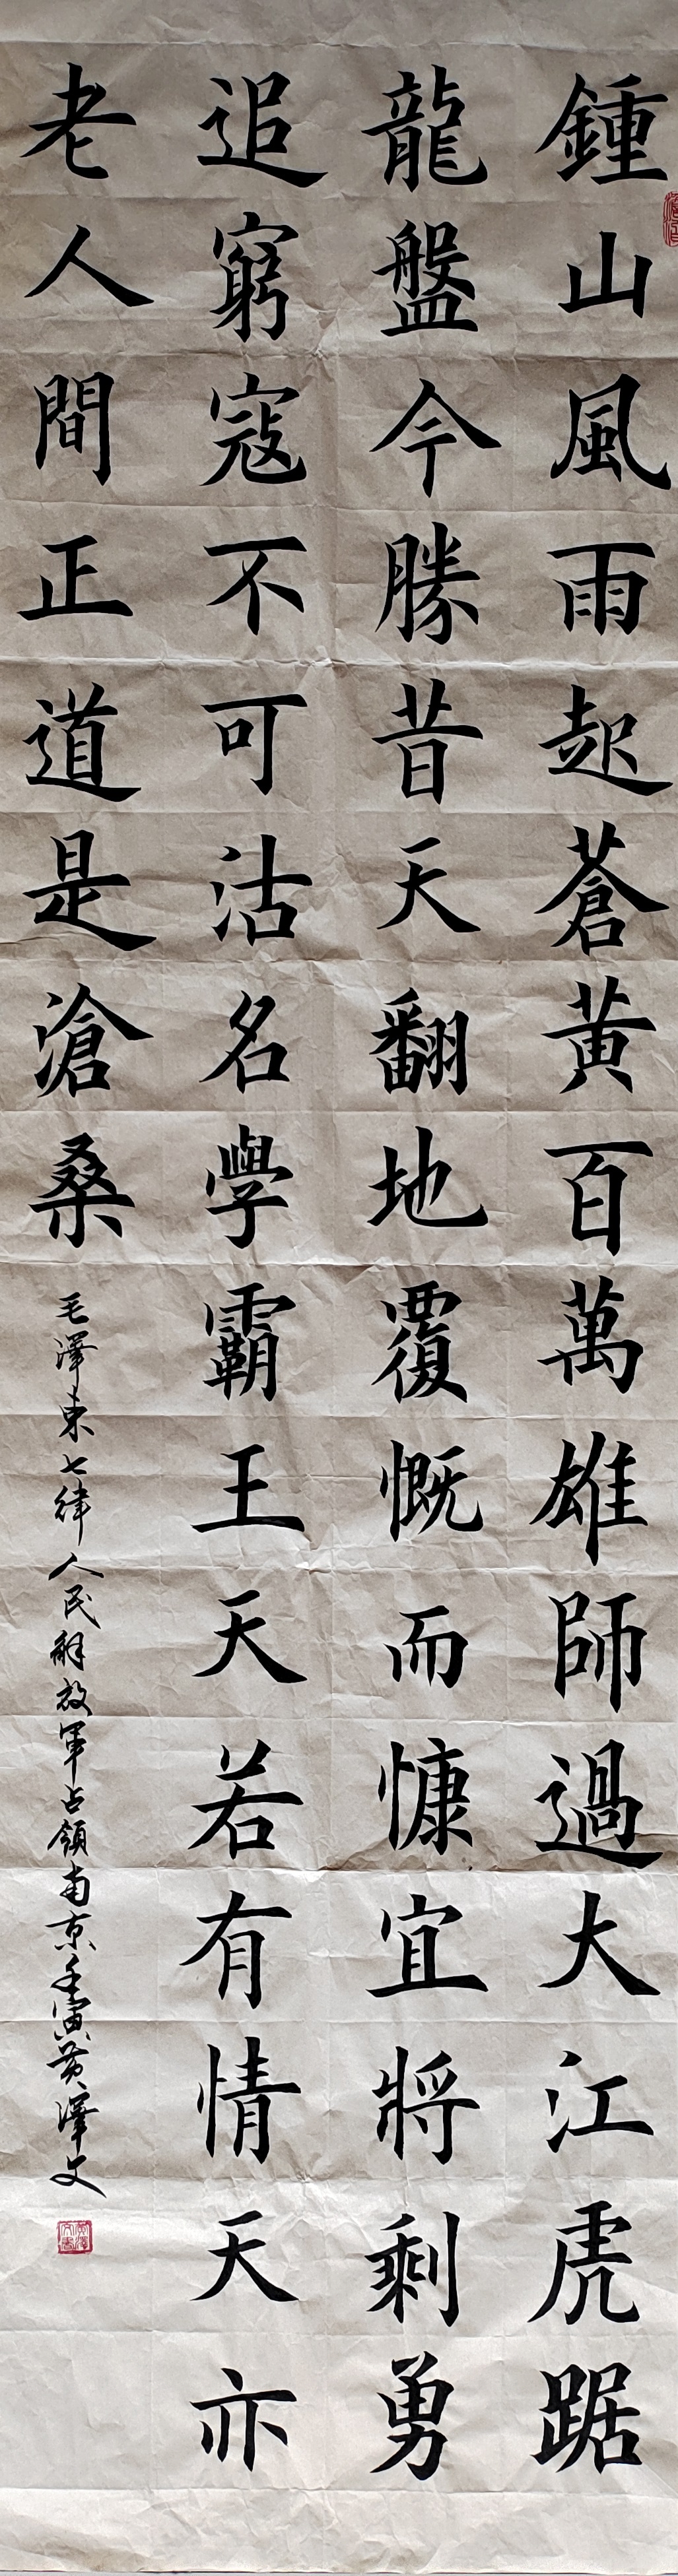 鍾山風雨起蒼黃百萬雄師過大江虎踞
龍盤今勝昔天翻地覆慨而慷宜將剩勇
追窮寇不可沽名學霸王天若有情天亦
老人間正道是滄桑
毛澤東七律人民解放軍占領南京壬寅黃澤文